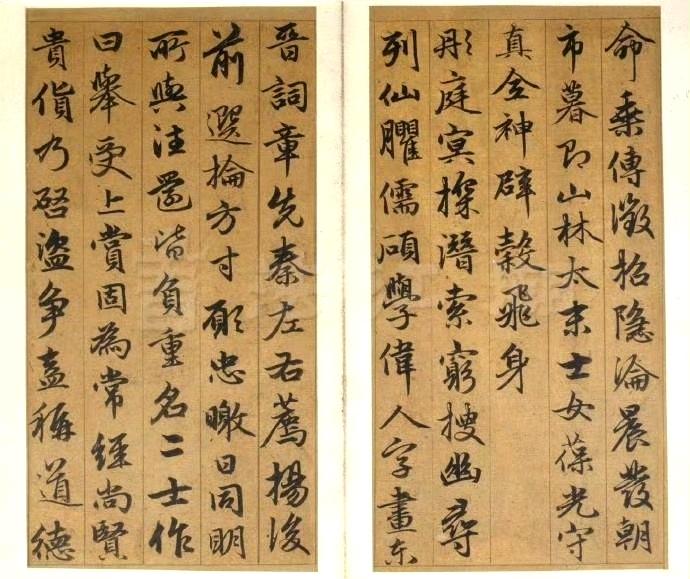 命乘傳徵招隱淪晨發朝
市暮即山林太末士女葆光守
真全神辟穀飛身
彤庭冥探潛索窮搜幽尋
列仙臞儒碩學偉人字畫東
晉詞章先秦左右薦揚後
前選掄方寸願忠曒日同明
所與往還皆負重名二士作
曰舉受上賞固為常經尚賢
貴貨乃啓盜爭盍稱道德